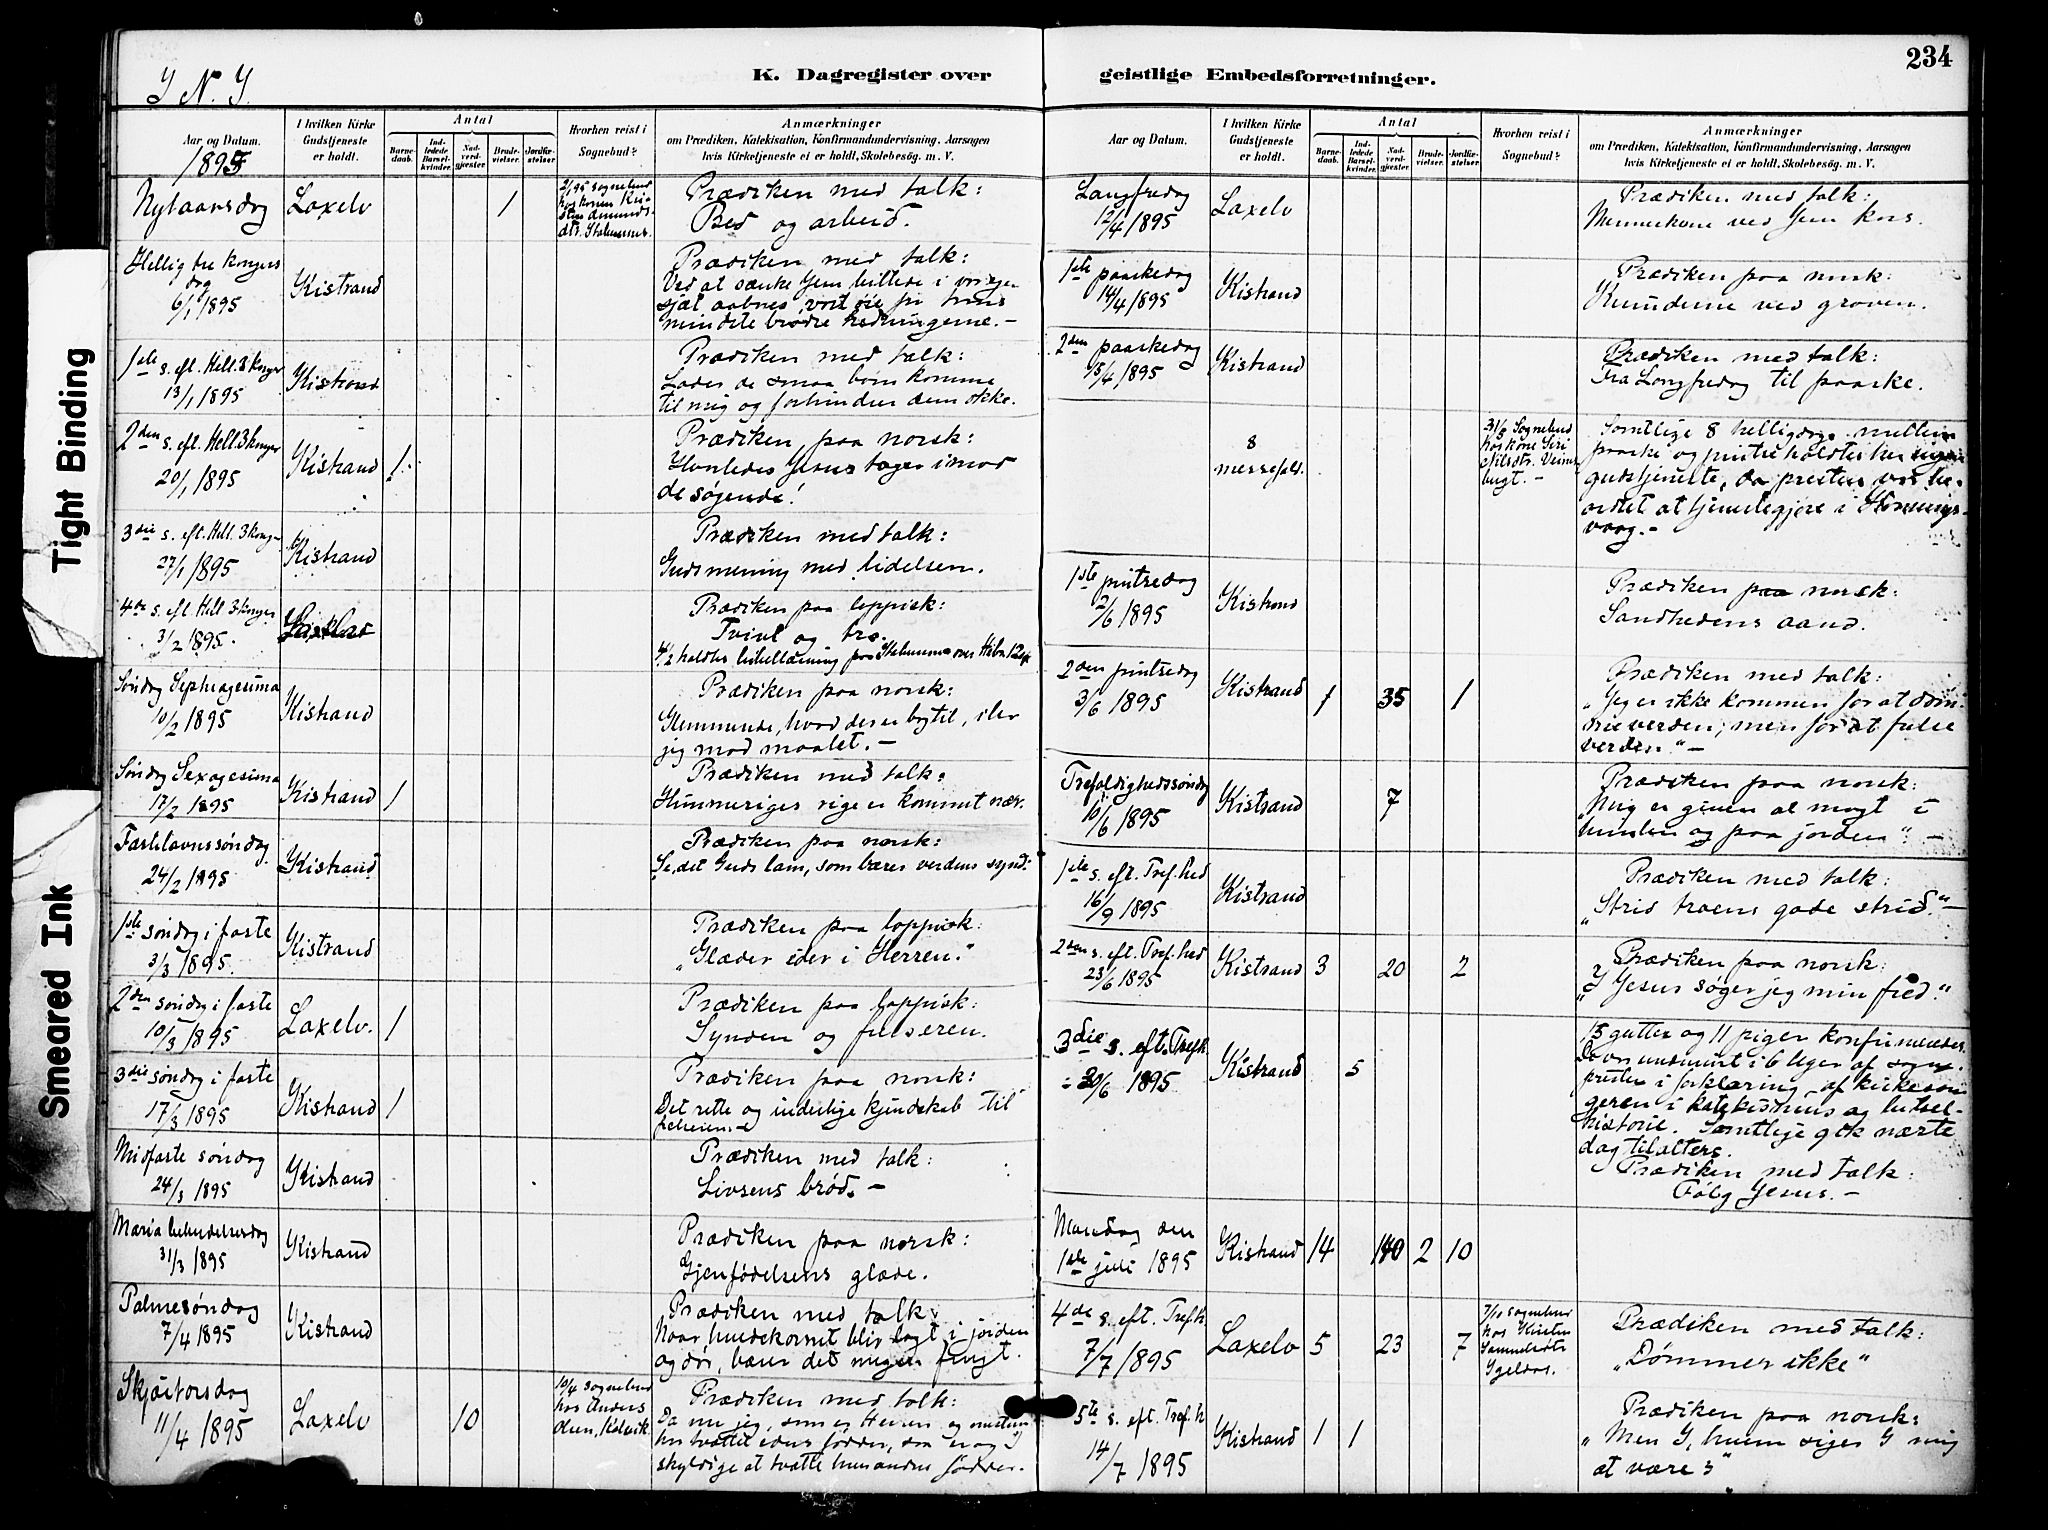 I N. J.
K. Dagregister over
geistlige Embedsforretninger.
234
Tight Binding
Smeared Ink
Aar og Datum.
I hvilken Kirke Gudstjeneste er holdt.
Antal
Barne-daab.
Ind-ledede Barsel-kvinder.
Nad-verd-gjester.
Brude-vielser.
Jordfæ-stelser
Hvorhen reist i Sognebud?
Anmærkninger
om Prædiken, Katekisation, Konfirmandundervisning, Aarsagen
hvis Kirketjeneste ei er holdt, Skolebesög. m. V.
1895
Nytaarsdag Laxelv 1
2/1 95 sognebud
hos konen
Prædiken med talk:
Bed og arbeid.
Hellig tre kongers
dag
6/1 1895
Kistrand
Prædiken med talk:
Ved at sænke
sjæl aabnes vort øie for hans
mindste brødre hedningerne. -
1ste s. eft. Hell. 3 konger
13/1 1895
Kistrand
Prædiken med talk:
Lader de smaa børn komme
til mig og forhindrer dem ikke.
2den s. eft. Hell. 3 konger
20/1 1895
Kistrand 1
Prædiken paa norsk:
Hvorledes Jesus tager imod
de søgende!
3die s. eft. Hell. 3 konger
27/1 1895
Kistrand
Prædiken med talk:
Guds mening med lidelsen.
4de s. eft. Hell 3 konger
3/2 1895.
Prædiken paa lappisk:
Tvivl og tro.
Søndag Septuagesima
10/2 1895
Kistrand
Prædiken paa norsk:
Glemmende, hvad der er bagtil, iler
jeg mod maalet. -
Søndag Sexagesima
17/2 1895
Kistrand 1
Prædiken med talk:
Himmeriges rige er kommet nær.
Fastelavnssøndag
24/2 1895
Kistrand
Prædiken paa norsk:
Se det Guds lam, som bærer verdens synd:
1ste søndag i faste
3/3 1895.
Kistrand
Prædiken paa lappisk:
„Glæder eder i Herren."
2den søndag i faste
10/3 1895
Laxelv. 1
Prædiken paa lappisk:
Synden og frelseren.
3die søndag i faste
17/3 1895
Kistrand 1
Prædiken paa norsk:
Det rette og inderlige kjendskab til
Midfaste søndag
24/3 1895
Kistrand
Prædiken med talk:
Livsens brød. -
Maria bebudelsesdag
31/3 1895
Kistrand
Prædiken paa norsk:
Gjenfødelsens glæde.
Palmesøndag
7/4 1895
Kistrand
Prædiken med talk
Naar hvedekornet blir lagt i jorden
og dør, bærer det megen frugt.
Skjærtorsdag
11/4 1895
Laxelv 10
10/4 sognebud
hos Anders
Olsen, Kolvik.
Prædiken med talk:
Da nu jeg, som er Herren og mesteren
har tvættet eders fødder, saa er og I
skyldige at tvætte hverandres fødder.
Aar og Datum.
I hvilken Kirke Gudstjeneste er holdt.
Antal
Barne-daab.
Ind-ledede Barsel-kvinder.
Nad-verd-gjester.
Brude-vielser.
Jordfæ-stelser
Hvorhen reist i Sognebud?
Anmærkninger
om Prædiken, Katekisation, Konfirmandundervisning, Aarsagen
hvis Kirketjeneste ei er holdt, Skolebesög. m. V.
Langfredag
12/4 1895
Laxelv
Prædiken med talk:
Menneskene ved Jesu kors.
1ste paaskedag
14/4 1895
Kistrand
Prædiken paa norsk:
Kvinderne ved graven.
2den paaskedag
15/4 1895
Kistrand
Prædiken med talk:
Fra Langfredag til paaske.
8
messefald.
31/5 Sognebud
hos kone Siri
Nilsdtr.
bugt. -
Samtlige 8 helligdage mellem
paaske og pintse holdtes her ingen
gudstjeneste, da presten var be-
ordret at tjenestegjøre i Honnings-
vaag. -
1ste pintsedag
2/6 1895
Kistrand
Prædiken paa norsk:
Sandhedens aand.
2den pintsedag
3/6 1895
Kistrand 1 35 1
Prædiken med talk:
„Jeg er ikke kommen for at døm-
me verden, men for at frelse
verden." -
Trefoldighedssøndag
10/6 1895
Kistrand 7
Prædiken paa norsk:
„Mig er given al magt i
himlen og paa jorden". -
1ste s. eft. Tref.hed
16/9 1895
Kistrand
Prædiken med talk:
„Strid troens gode strid." -
2den s. eft. Tref.hed
23/6 1895
Kistrand 3 20 2
Prædiken paa norsk:
„I Jesus søger jeg min fred."
3die s. eft. Trefh.
30/6 1895
Kistrand 5
15 gutter og 11 piger konfirmeredes.
De var undervist i 6 uger af sogne-
presten i forklaring, af kirkesan-
geren i katekismus og bibel-
historie. Samtlige gik næste
dag til alters.
Prædiken med talk:
Følg Jesus. -
Mandag den
1ste juli 1895
Kistrand 14 140 2 10
4de s. eft. Trefh.
7/7 1895
Laxelv 5 23 7
sognebud
hos Kirsten
Samuelsdtr
Igeldas.
Prædiken med talk:
„Dømmer ikke"
5te s. eft. Tref. h
14/7 1895
Kistrand 1 1
Prædiken paa norsk:
„Men I, hvem siger I mig
at være?"